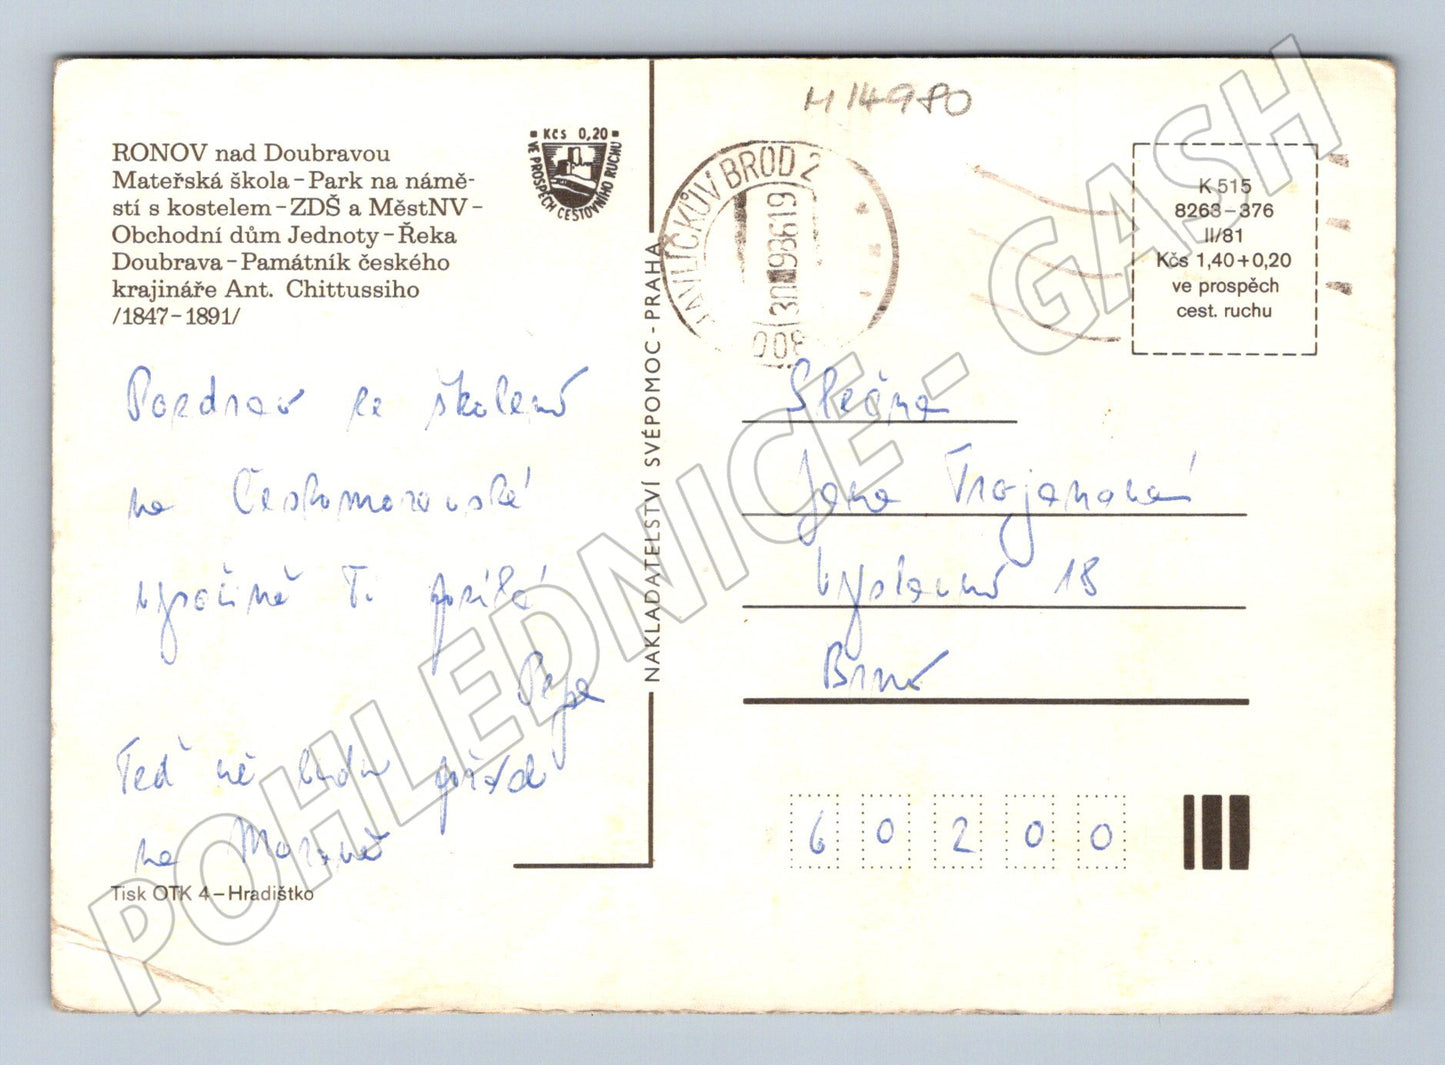 M 14980
RONOV nad Doubravou
Mateřská škola – Park na námě-
stí s kostelem – ZDŠ a MěstNV –
Obchodní dům Jednoty – Řeka
Doubrava – Památník českého
krajináře Ant. Chittussiho
/1847 – 1891/
Kčs 0,20
VE PROSPĚCH CESTOVNÍHO RUCHU
HAVLÍČKŮV BROD 2
K 515
8263 – 376
II/81
Kčs 1,40 + 0,20
ve prospěch
cest. ruchu
Pozdrav ze školení
na Českomoravské
vysočině Ti posílá
Pepa
Teď mě budu
na Moravě
Tisk OTK 4 – Hradištko
NAKLADATELSTVÍ SVÉPOMOC - PRAHA
Slečna
Jana Trojanová
Výstavní 18
Brno
60200
POHLEDNICE - GASH